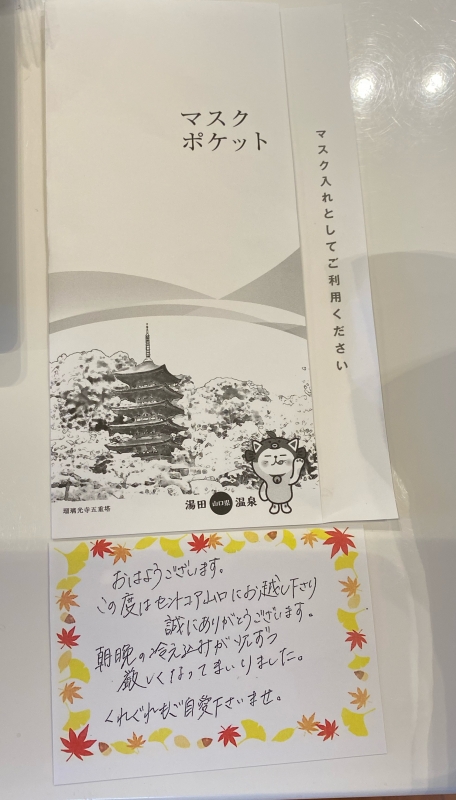 マスク
ポケット
マスク入れとしてご利用ください
瑠璃光寺五重塔
湯田 山口県 温泉
おはようございます。
この度はセントコア山口にお越し下さり
誠にありがとうございます。
朝晩の冷え込みが少しずつ
厳しくなってまいりました。
くれぐれもご自愛下さいませ。